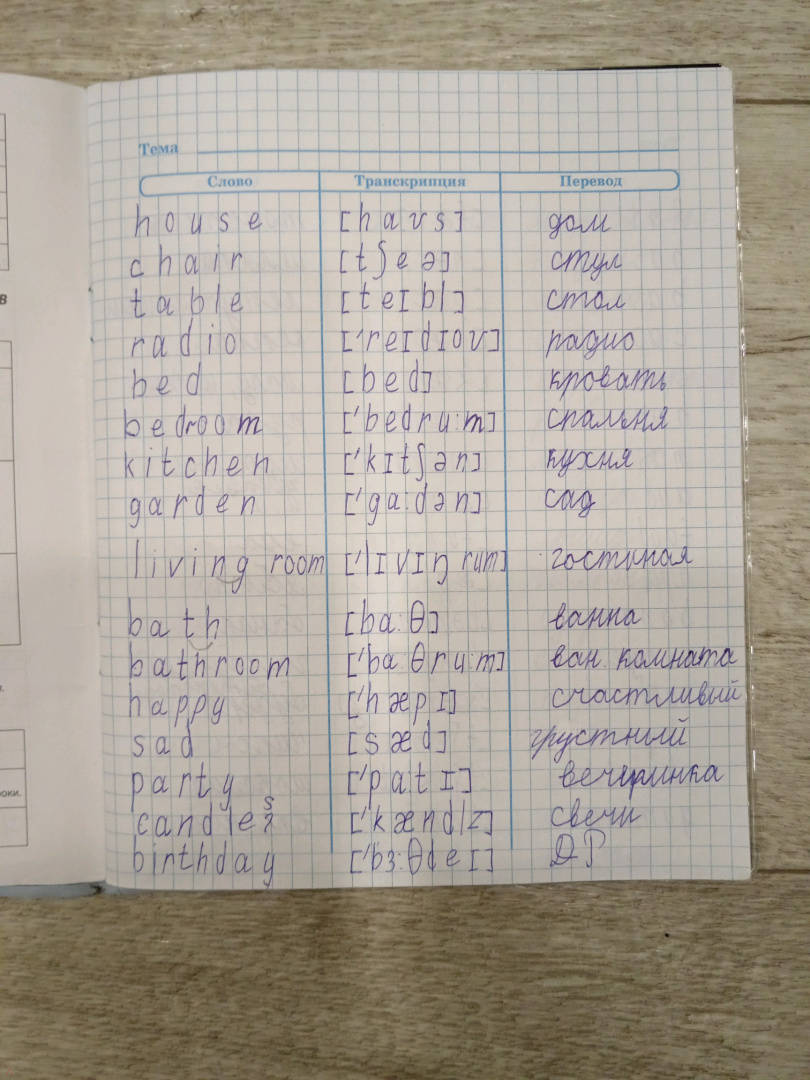 Тема
Слово Транскрипция Перевод
house [haʊs] дом
chair [tʃeə] стул
table [teɪbl] стол
radio ['reɪdɪoʊ] радио
bed [bed] кровать
bedroom ['bedru:m] спальня
kitchen ['kɪtʃən] кухня
garden ['ga:dən] сад
living room ['lɪvɪŋ rum] гостиная
bath [ba:θ] ванна
bathroom ['ba:θru:m] ван. комната
happy ['hæpɪ] счастливый
sad [sæd] грустный
party ['pa:tɪ] вечеринка
candles ['kændlz] свечи
birthday ['bɜ:θdeɪ] ДР
в
оки.